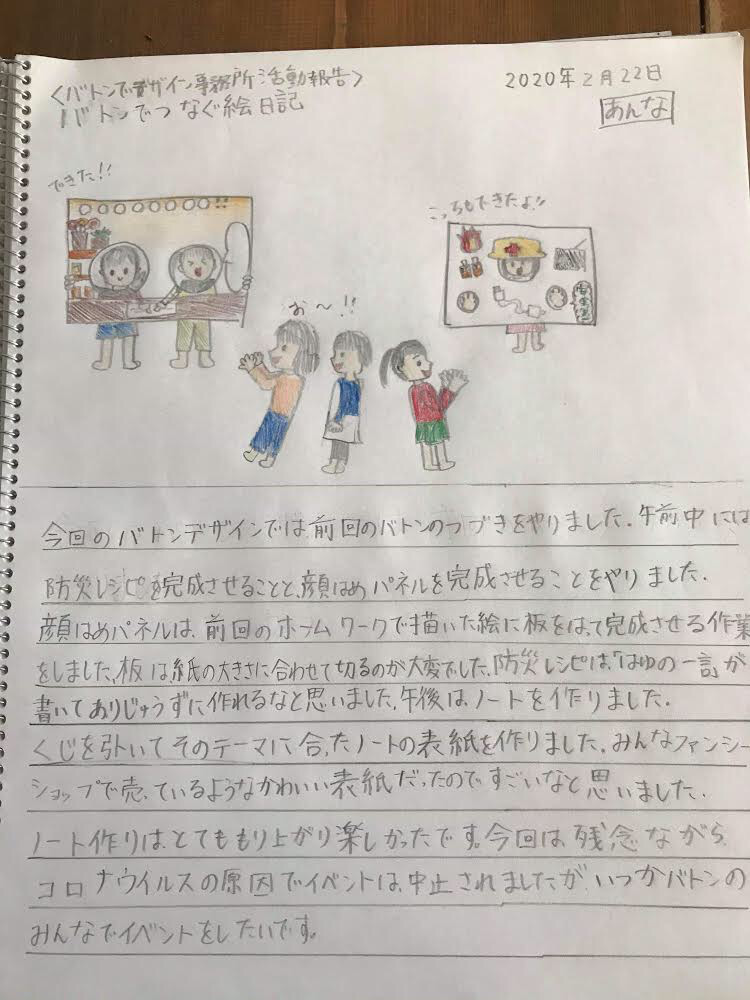 <バトンでデザイン事務所活動報告>
2020年2月22日
バトンでつなぐ絵日記
あんな
できた!!
こっちもできたよ!!
お〜!!
今回のバトンデザインでは前回のバトンのつづきをやりました。午前中には
防災レシピを完成させることと、顔はめパネルを完成させることをやりました.
顔はめパネルは、前回のホームワークで描いた絵に板をはって完成させる作業
をしました。板は紙の大きさに合わせて切るのが大変でした。防災レシピは「はゆの一言」が
書いてありじょうずに作れるなと思いました。午後はノートを作りました.
くじを引いてそのテーマに合ったノートの表紙を作りました。みんなファンシー
ショップで売っているようなかわいい表紙だったのですごいなと思いました.
ノート作りはとてももり上がり楽しかったです。今回は残念ながら
コロナウイルスの原因でイベントは、中止されましたが、いつかバトンの
みんなでイベントをしたいです。